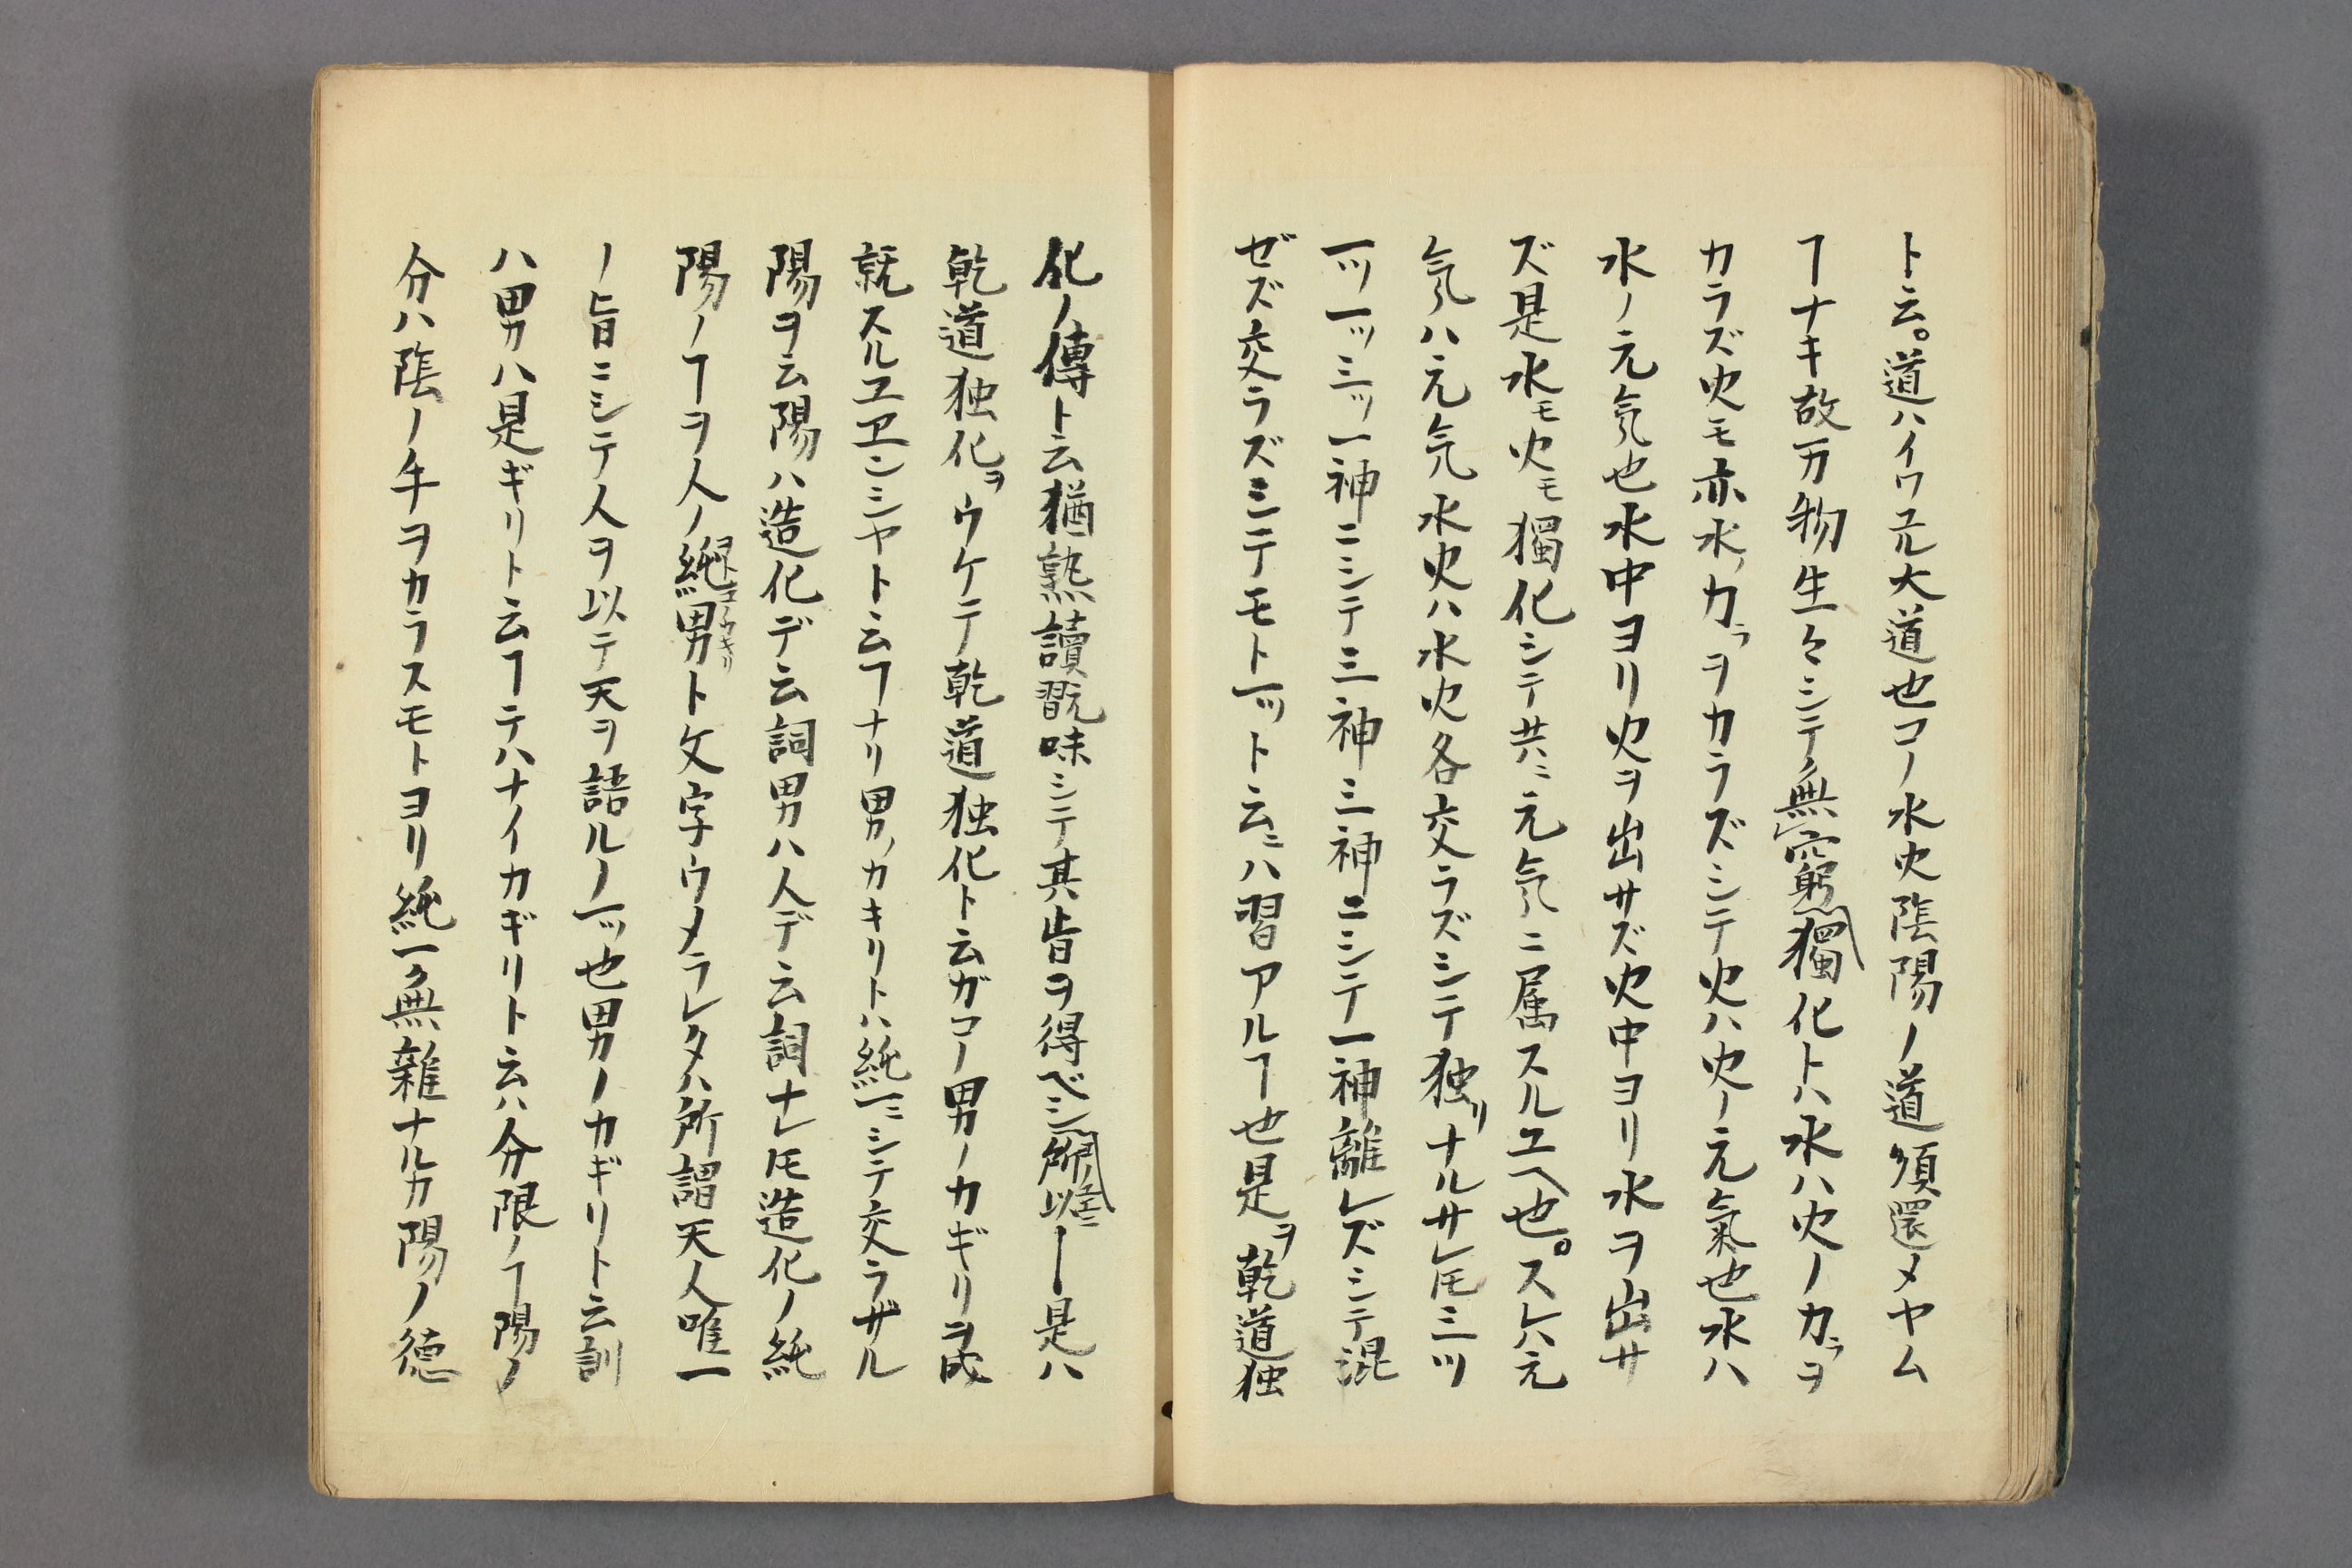 ト云。道ハイワユル大道也コノ水火陰陽ノ道須還メヤム
ヿナキ故万物生々シテ無窮獨化トハ水ハ火ノカラヲ
カラズ火モ亦水ノカラヲカラズシテ火ハ火ノ元氣也水ハ
水ノ元気也水中ヨリ火ヲ出サズ火中ヨリ水ヲ出サ
ズ是水モ火モ獨化シテ共ニ元気ニ属スルユヘ也。スヘハ元
気ハ元気水火ハ水火各交ラズシテ独リナルサレ𪜈三ツ
一ツ一ツ三ツ一神ニシテ三神三神ニシテ一神離レズシテ混
ゼズ交ラズシテモト一ツト云ニハ習アルヿ也是ヲ乾道独
化ノ傳ト云猶熟讀翫味シテ其旨ヲ得ベシ所以ー是ハ
乾道独化ヲウケテ乾道独化ト云ガコノ男ノカギリヲ成
就スルユヱンシヤト云フナリ男ノカキリトハ純一ニシテ交ラザル
陽ヲ云陽ハ造化デ云詞男ハ人デ云詞ナレ𪜈造化ノ純
陽ノヿヲ人ノ純男ト文字ウメラレタハ所謂天人唯一
ノ旨ニシテ人ヲ以テ天ヲ語ルノ一ツ也男ノカギリト云訓
ハ男ハ是ギリト云ヿテハナイカギリト云ハ分限ノヿ陽ノ
分ハ陰ノ手ヲカラスモトヨリ純一ク無雜ナルカ陽ノ德